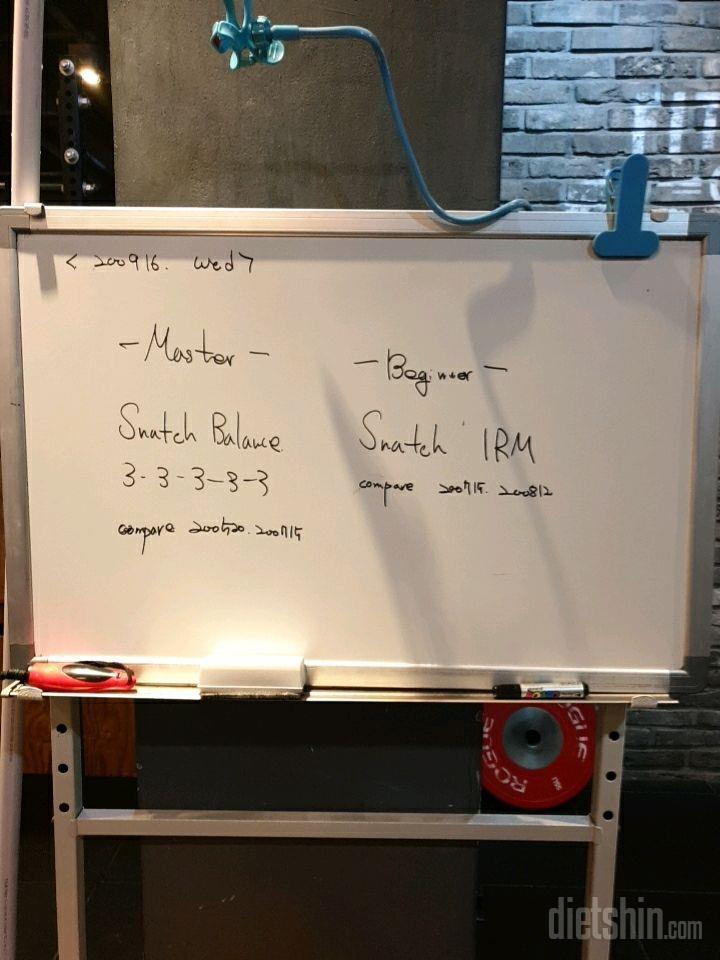 < 200916. wed >
- Master -
Snatch Balance
3-3-3-3-3
compare 200520. 200715
- Beginner -
Snatch 1RM
compare 200715. 200812
ROGUE
dietshin.com